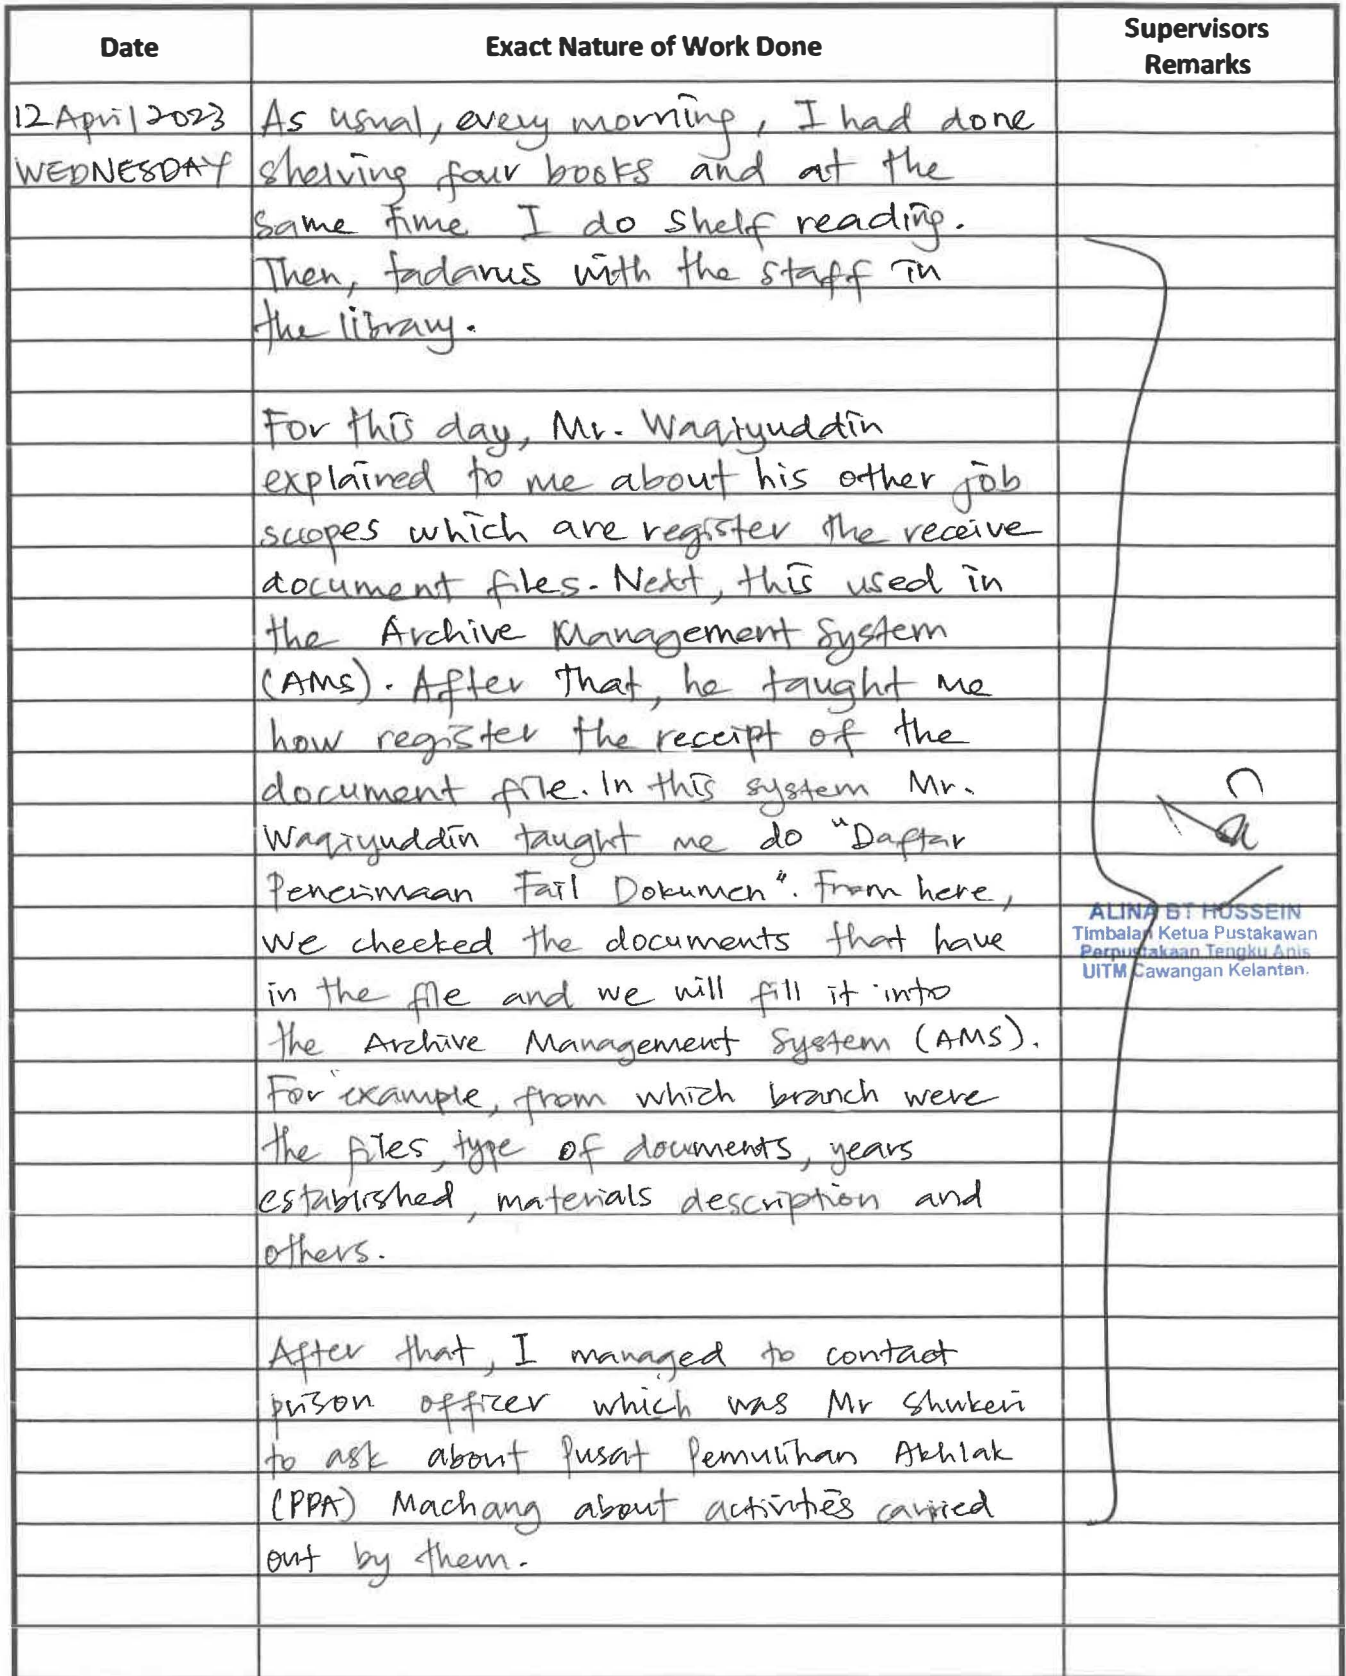 Date
Exact Nature of Work Done
Supervisors
Remarks
12 April 2023
WEDNESDAY
As usual, every morning, I had done
shelving four books and at the
same time I do shelf reading.
Then, tadarus with the staff in
the library.
For this day, Mr. Waqiyuddin
explained to me about his other job
scopes which are register the receive
document files. Next, this used in
the Archive Management System
(AMS). After that, he taught me
how register the receipt of the
document file. In this system Mr.
Waqiyuddin taught me do "Daftar
Penerimaan Fail Dokumen". From here,
we checked the documents that have
in the file and we will fill it into
the Archive Management System (AMS).
For example, from which branch were
the files, type of documents, years
established, materials description and
others.
After that, I managed to contact
prison officer which was Mr Shukeri
to ask about Pusat Pemulihan Akhlak
(PPA) Machang about activities carried
out by them.
ALINA BT HUSSEIN
Timbalan Ketua Pustakawan
Perpustakaan Tengku Anis
UITM Cawangan Kelantan.